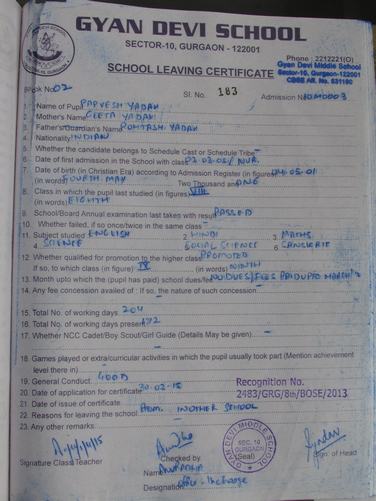 GYAN DEVI SCHOOL
SECTOR-10, GURGAON - 122001
Phone : 2212221(O)
Gyan Devi Middle School
Sector-10, Gurgaon-122001
CBSE Aff. No. 531190
SCHOOL LEAVING CERTIFICATE
Book No. 02 Sl. No. 183 Admission No
1. Name of Pupil PARVESH YADAV
2. Mother's Name GEETA YADAV
3. Father's/Guardian's Name ROHTASH YADAV
4. Nationality INDIAN
5. Whether the candidate belongs to Schedule Cast or Schedule Tribe -
6. Date of first admission in the School with class 02.03.05/ NUR.
7. Date of birth (in Christian Era) according to Admission Register (in figure) 04.05.01
(in words) FOURTH MAY Two Thousand and ONE
8. Class in which the pupil last studied (in figures) VIII
(in words) EIGHTH
9. School/Board Annual examination last taken with result PASSED
10. Whether failed, if so once/twice in the same class -
11. Subject studied ENGLISH 2. HINDI 3. MATHS
4. SCIENCE SOCIAL SCIENCE 6. SANSKRIT
12. Whether qualified for promotion to the higher class PROMOTED
If so, to which class (in figure) IX (in words) NINTH
13. Month upto which the (pupil has paid) school dues/fee NO DUES/FEES PAID UPTO MARCH
14. Any fee concession availed of : If so, the nature of such concession -
15. Total No. of working days 204
16. Total No. of working days present 172
17. Whether NCC Cadet/Boy Scout/Girl Guide (Details May be given). -
18. Games played or extra/curricular activities in which the pupil usually took part (Mention achievement
level there in)
19. General Conduct. GOOD
20. Date of application for certificate 30-02-15
21. Date of issue of certificate
22. Reasons for leaving the school ADM. IN OTHER SCHOOL
23. Any other remarks.
Recognition No.
2483/GRG/8th/BOSE/2013
GYAN DEVI MIDDLE SCHOOL
SEC. 10
GURGAON
(Seal)
Signature Class Teacher Checked by Sign. of Head
Name
Designation Office Incharge